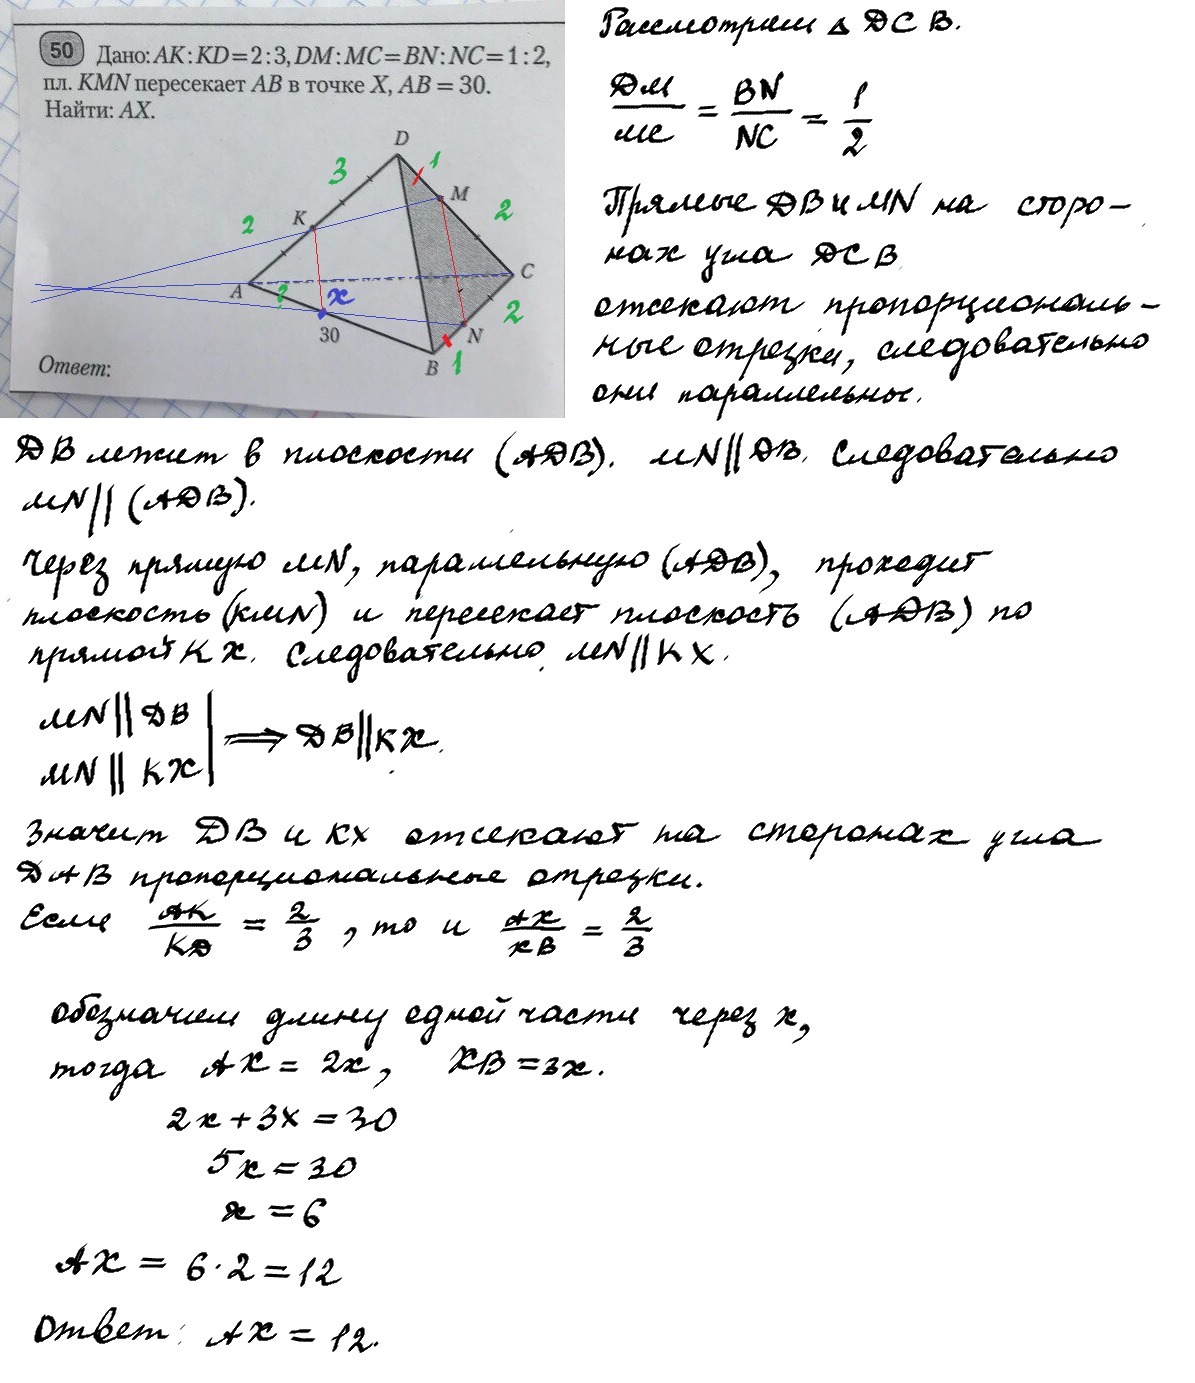 50 Дано: AK : KD = 2 : 3, DM : MC = BN : NC = 1 : 2,
пл. KMN пересекает AB в точке X, AB = 30.
Найти: AX.
D
3
1
M
2
K
2
C
A
?
x
2
30
N
B
1
Ответ:
Рассмотрим △ DCB.
DM/MC = BN/NC = 1/2
Прямые DB и MN на сторо-
нах угла DCB
отсекают пропорциональ-
ные отрезки, следовательно
они параллельны.
DB лежит в плоскости (ADB). MN||DB. Следовательно
MN||(ADB).
Через прямую MN, параллельную (ADB), проходит
плоскость (KMN) и пересекает плоскость (ADB) по
прямой KX. Следовательно MN||KX.
MN||DB
MN||KX
⟹ DB||KX.
Значит DB и KX отсекают на сторонах угла
DAB пропорциональные отрезки.
Если AK/KD = 2/3, то и AX/XB = 2/3
обозначим длину одной части через x,
тогда AX = 2x, XB = 3x.
2x + 3x = 30
5x = 30
x = 6
AX = 6·2 = 12
Ответ: AX = 12.